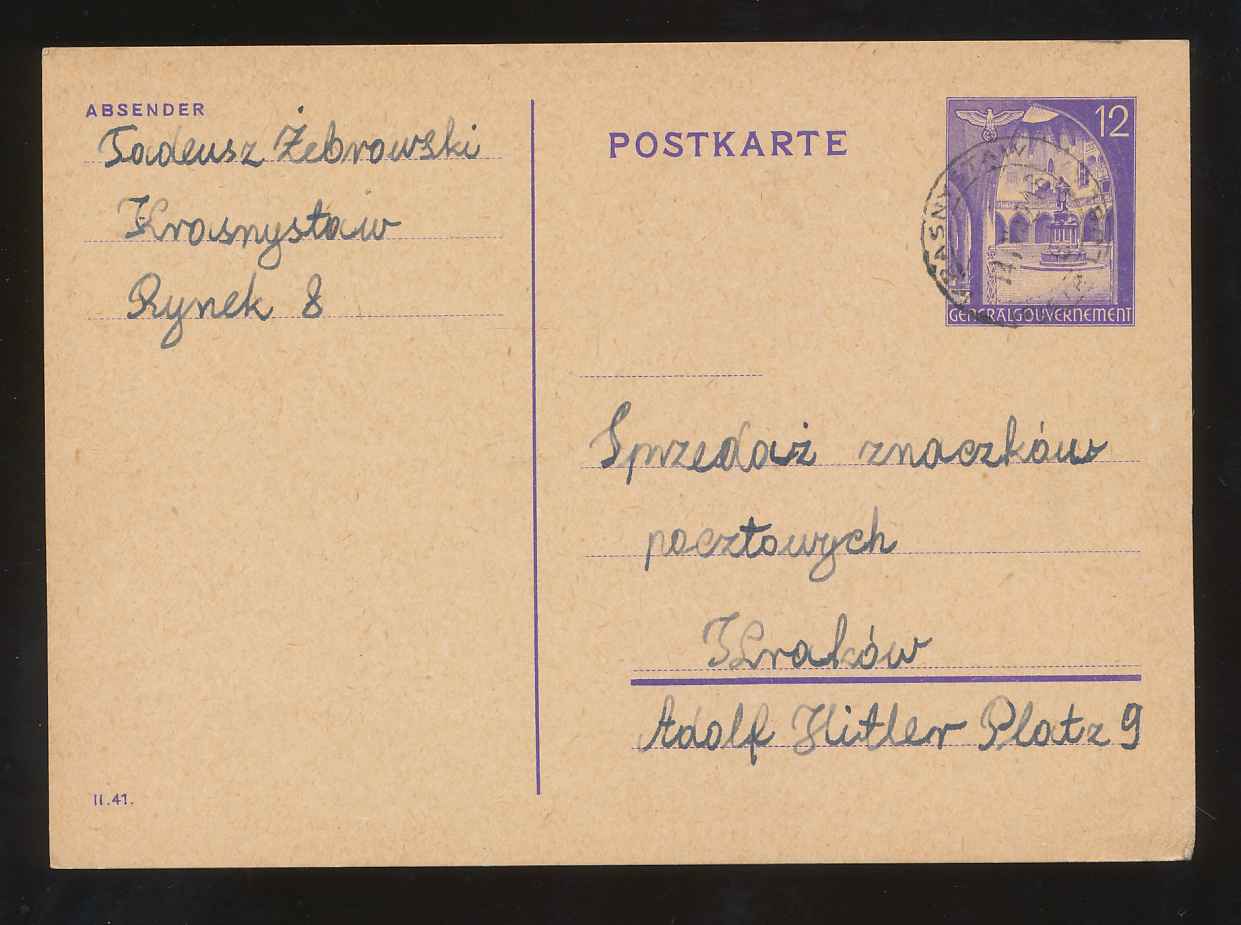 ABSENDER
Tadeusz Żebrowski
Krasnystaw
Rynek 8
II.41.
POSTKARTE
12
GENERALGOUVERNEMENT
Sprzedaż znaczków
pocztowych
Kraków
Adolf Hitler Platz 9